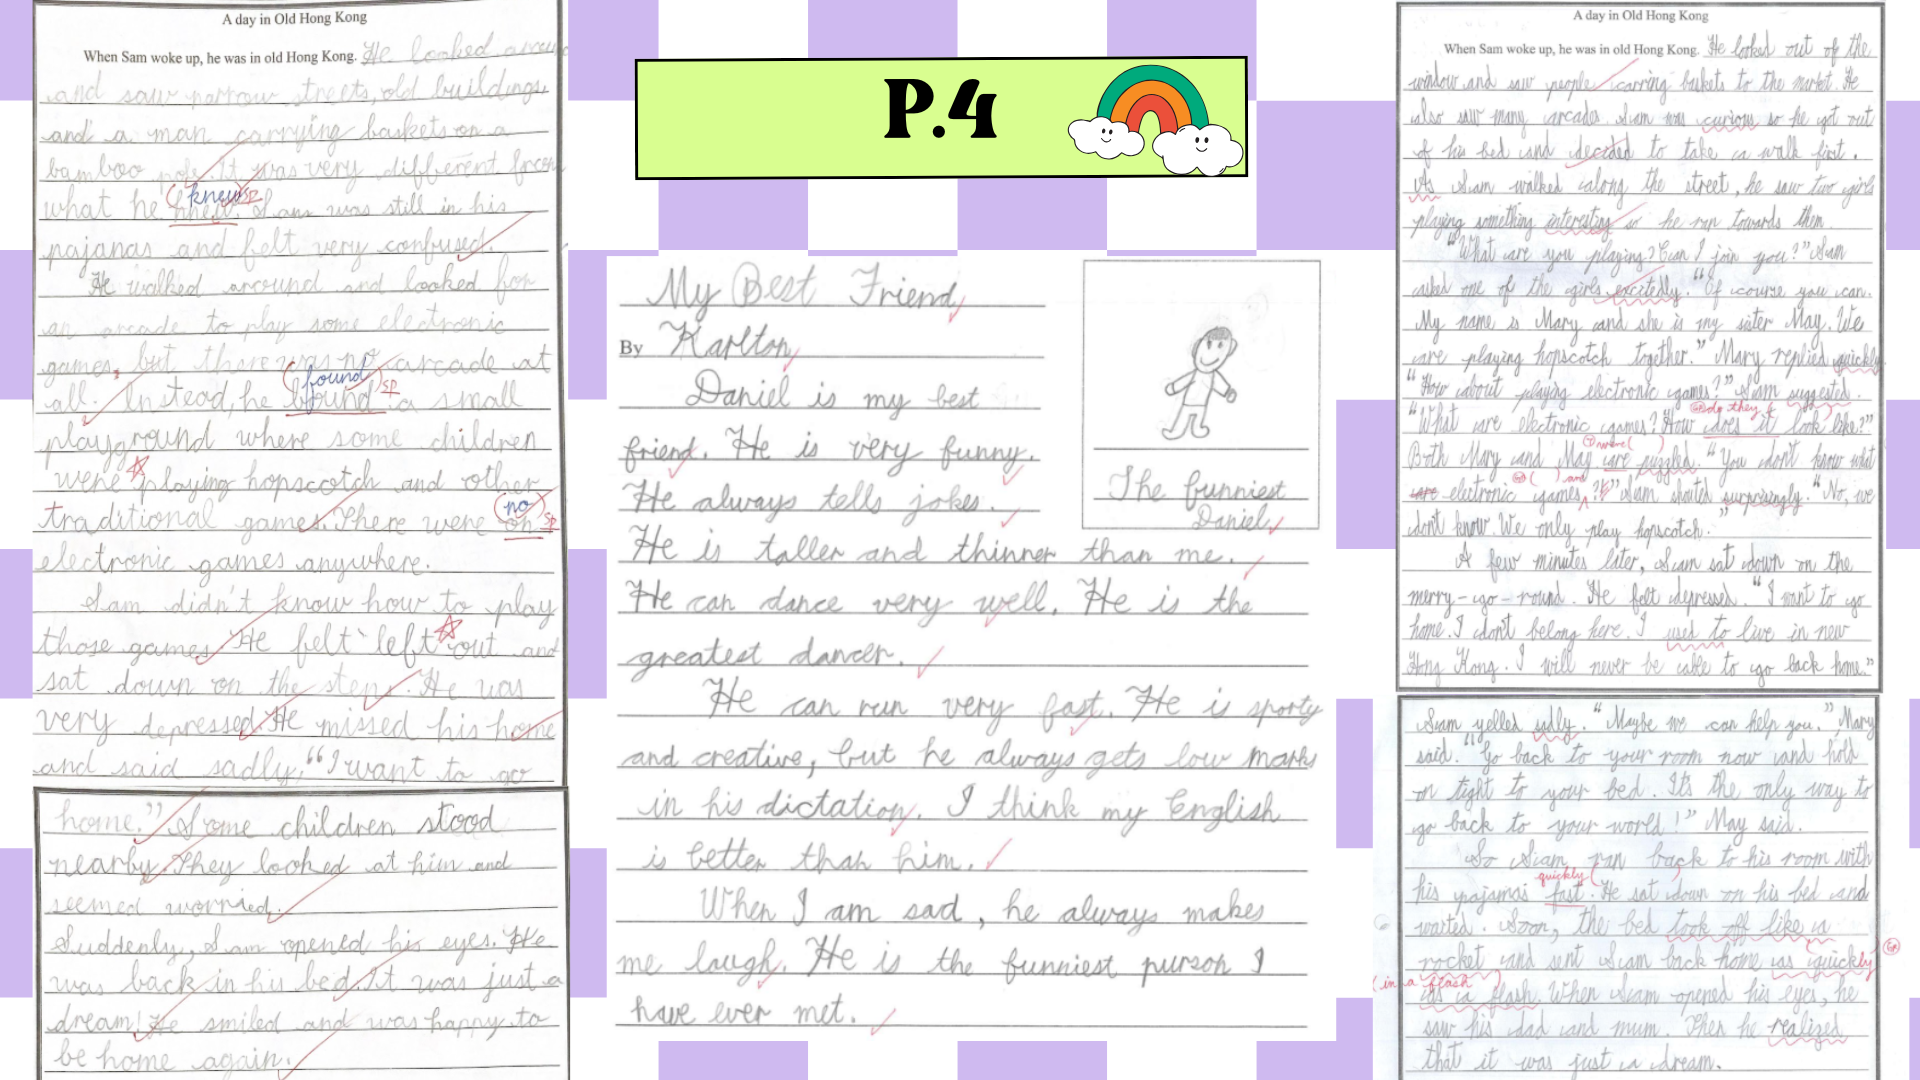 A day in Old Hong Kong
When Sam woke up, he was in old Hong Kong. He looked aroun
and saw narrow streets, old buildings
and a man carrying baskets on a
bamboo pole. It was very different from
(knew) sp
what he hnew. Sam was still in his
pajanas and felt very confused.
He walked around and looked for
an arcade to play some electronic
games, but there was no arcade at
(found) sp
all. Instead, he bfound a small
playground where some children
were playing hopscotch and other
(no)
traditional games. There were on sp
electronic games anywhere.
Sam didn't know how to play
those games. He felt left out and
sat down on the steps. He was
very depressed. He missed his home
and said sadly, "I want to go
home." Some children stood
nearby. They looked at him and
seemed worried.
Suddenly, Sam opened his eyes. He
was back in his bed. It was just a
dream! He smiled and was happy to
be home again.
P.4
My Best Friend
By Karlton
Daniel is my best
friend. He is very funny.
He always tells jokes.
He is taller and thinner than me.
He can dance very well. He is the
greatest dancer.
He can run very fast. He is sporty
and creative, but he always gets low marks
in his dictation. I think my English
is better than him.
When I am sad, he always makes
me laugh. He is the funniest purson I
have ever met.
The funniest
Daniel
A day in Old Hong Kong
When Sam woke up, he was in old Hong Kong. He looked out of the
window and saw people carring baskets to the market. He
also saw many arcades. Sam was curious so he got out
of his bed and decided to take a walk first.
As Sam walked along the street, he saw two girls
playing something interesting so he ran towards them.
"What are you playing? Can I join you?" Sam
asked one of the girls excitedly. "Of course you can.
My name is Mary and she is my sister May. We
are playing hopscotch together." Mary replied quickly.
"How about playing electronic games?" Sam suggested.
do they
"What are electronic games? How does it look like?"
were
Both Mary and May are puzzled. "You don't know what
and
are electronic games is?" Sam shouted surprisingly. "No, we
don't know. We only play hopscotch."
A few minutes later, Sam sat down on the
merry-go-round. He felt depressed. "I want to go
home. I don't belong here. I used to live in new
Hong Kong. I will never be able to go back home."
Sam yelled sadly. "Maybe we can help you." Mary
said. "Go back to your room now and hold
on tight to your bed. It's the only way to
go back to your world!" May said.
So Sam ran back to his room with
quickly
his pajamas fast. He sat down on his bed and
waited. Soon, the bed took off like a
rocket and sent Sam back home as quickly
(in a flash)
as a flash. When Sam opened his eyes, he
saw his dad and mum. Then he realized
that it was just a dream.